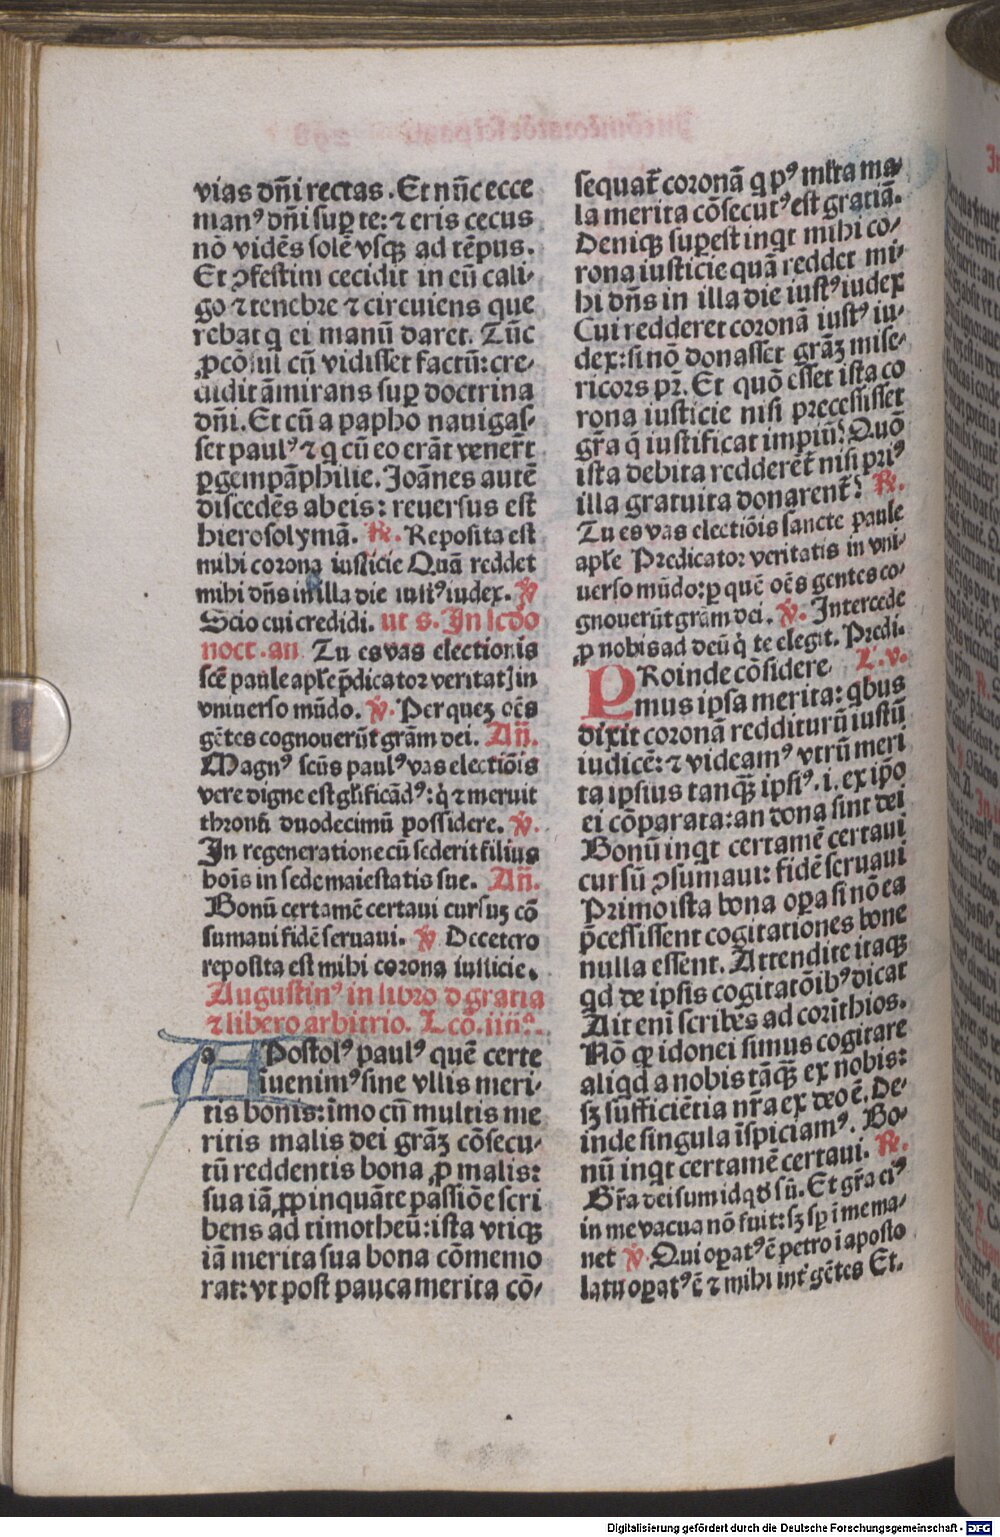 vias dñi rectas. Et nũc ecce
manꝰ dñi suꝑ te: ⁊ eris cecus
nõ vidẽs solẽ vsqꝫ ad tẽpus.
Et ꝯfestim cecidit in eũ cali-
go ⁊ tenebre ⁊ circuiens que
rebat q̇ ei manũ daret. Tũc
ꝓcõsul cũ vidisset factũ: cre-
didit ãmirans suꝑ doctrina
dñi. Et cũ a papho nauigas-
set paulꝰ ⁊ q̇ cũ eo erãt venert̃
ꝑgempãphilie. Joãnes autẽ
discedẽs abeis: reuersus est
hierosolymã. R̃. Reposita est
mihi corona iusticie Quã reddet
mihi dñs in illa die iustꝰ iudex. v̇
Scio cui credidi. ut s. In scdo
noct. an Tu es vas electionis
scẽ paule apl̃e p̃dicator veritat̃ in
vniuerso mũdo. v̇. Per queꝫ oẽs
gẽtes cognouerũt grãm dei. Añ.
Magnꝰ scũs paulꝰ vas electiõis
vere digne est gl̃ificãdꝰ: q̇ ⁊ meruit
thronũ duodecimũ possidere. v̇.
In regeneratione cũ sederit filius
hoĩs in sede maiestatis sue. Añ.
Bonũ certamẽ certaui cursuꝫ cõ
sumaui fidẽ seruaui. v̇ Decetero
reposita est mihi corona iusticie.
Augustinꝰ in libro d gratia
⁊ libero arbitrio. Lcõ. iiii.
APostolꝰ paulꝰ quẽ certe
iuenimꝰ sine vllis meri-
tis bonis: ĩmo cũ multis me
ritis malis dei grãꝫ cõsecu-
tũ reddentis bona ꝓ malis:
sua iã ꝓpinquãte passiõe scri
bens ad timotheũ: ista vtiqꝫ
iã merita sua bona cõmemo
rat: vt post pauca merita cõ-
sequat̃ coronã q pꝰ mlt̃a ma-
la merita cõsecutꝰ est gratiã.
Deniqꝫ suꝑest inqt mihi co-
rona iusticie quã reddet mi-
hi dñs in illa die iustꝰ iudex
Cui redderet coronã iustꝰ iu-
dex: si nõ donasset grãꝫ mise-
ricors pr̃. Et quõ esset ista co
rona iusticie nisi precessisset
gr̃a q̃ iustificat impiũ? Quõ
ista debita redderet̃ nisi priꝰ
illa gratuita donarent̃? R̃.
Tu es vas electiõis sancte paule
apl̃e Predicator veritatis in vni-
uerso mũdo: ꝑ quẽ oẽs gentes co-
gnouerũt grãm dei. v̇. Intercede
ꝓ nobis ad deũ q̇ te elegit. Predi.
PRoinde cõsidere L. v.
mus ipsa merita: qbus
dixit coronã redditurũ iustũ
iudicẽ: ⁊ videamꝰ vtrũ meri
ta ipsius tanqꝫ̃ ipsiꝰ. i. ex ip̃o
ei cõparata: an dona sint dei
Bonũ inqt certamẽ certaui
cursũ ꝯsumaui: fidẽ seruaui
Primo ista bona oꝑa si nõ ea
p̃cessissent cogitationes bone
nulla essent. Attendite itaqꝫ
qd de ipsis cogitatõibꝰ dicat
Ait enĩ scribẽs ad corĩthios.
Nõ ꝙ idonei simus cogitare
aliqd a nobis tãqꝫ̃ ex nobis:
sꝫ sufficiẽtia nr̃a ex deo ẽ. De-
inde singula ĩspiciamꝰ. Bo-
nũ inqt certamẽ certaui. R̃.
Gr̃a dei sum id qđ sũ. Et gr̃a eiꝰ
in me vacua nõ fuit: sꝫ sp̃ ĩ me ma-
net v̇. Qui oꝑatꝰ ẽ petro ĩ aposto
latu oꝑatꝰ ẽ ⁊ mihi int̃ gẽtes Et.
Digitalisierung gefördert durch die Deutsche Forschungsgemeinschaft - DFG